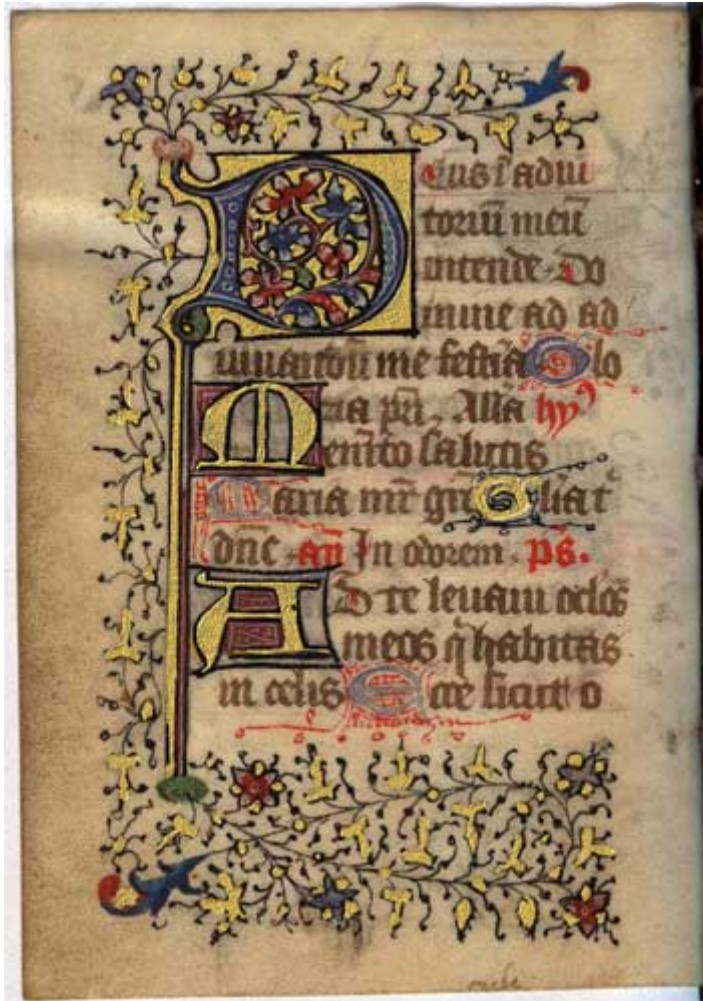 Deus ī adiu
toriū meū
intende. Do
mine ad ad
iuuandū me festīa Glo
ria pr̄i. All̄a hy⁹
Mem̄to salutis
Maria mr̄ gr̄e Glīa t
dn̄e añ In odorem. ps̄.
AD te leuaui oc̄los
meos q̄ habitas
in celis Ecce sicut o